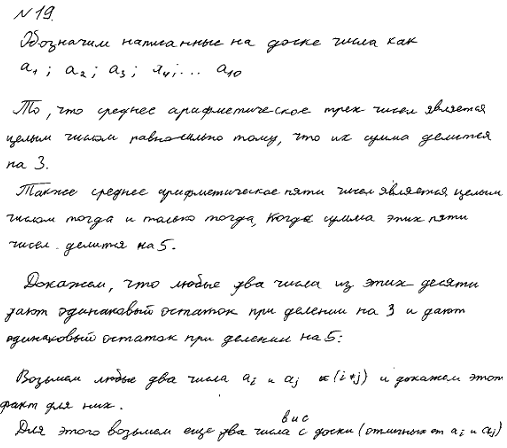 № 19.
Обозначим написанные на доске числа как
a₁ ; a₂ ; a₃ ; a₄ ; ... a₁₀
То, что среднее арифметическое трех чисел является
целым числом равносильно тому, что их сумма делится
на 3.
Также среднее арифметическое пяти чисел является целым
числом тогда и только тогда, когда сумма этих пяти
чисел делится на 5.
Докажем, что любые два числа из этих десяти
дают одинаковый остаток при делении на 3 и дают
одинаковый остаток при делении на 5:
Возьмем любые два числа aᵢ и aⱼ (i≠j) и докажем этот
факт для них.
в и с
Для этого возьмем еще два числа с доски (отличных от aᵢ и aⱼ)